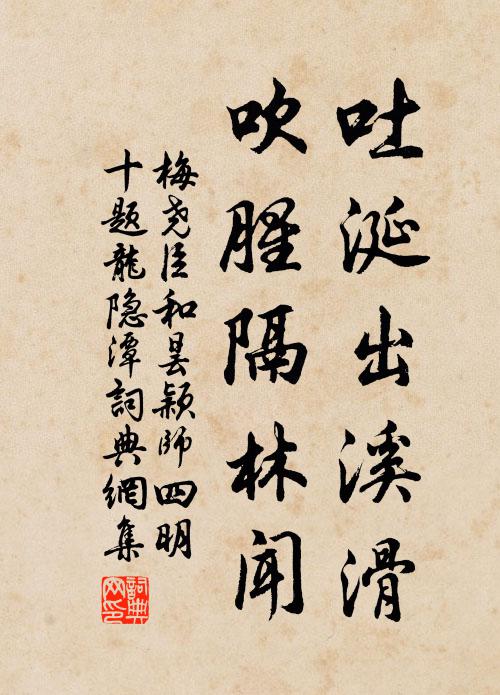 吐涎出溪滑
吹腥隔林闻
梅尧臣和昙颖师四明
十题龍隐潭詞典網集
詞典网印